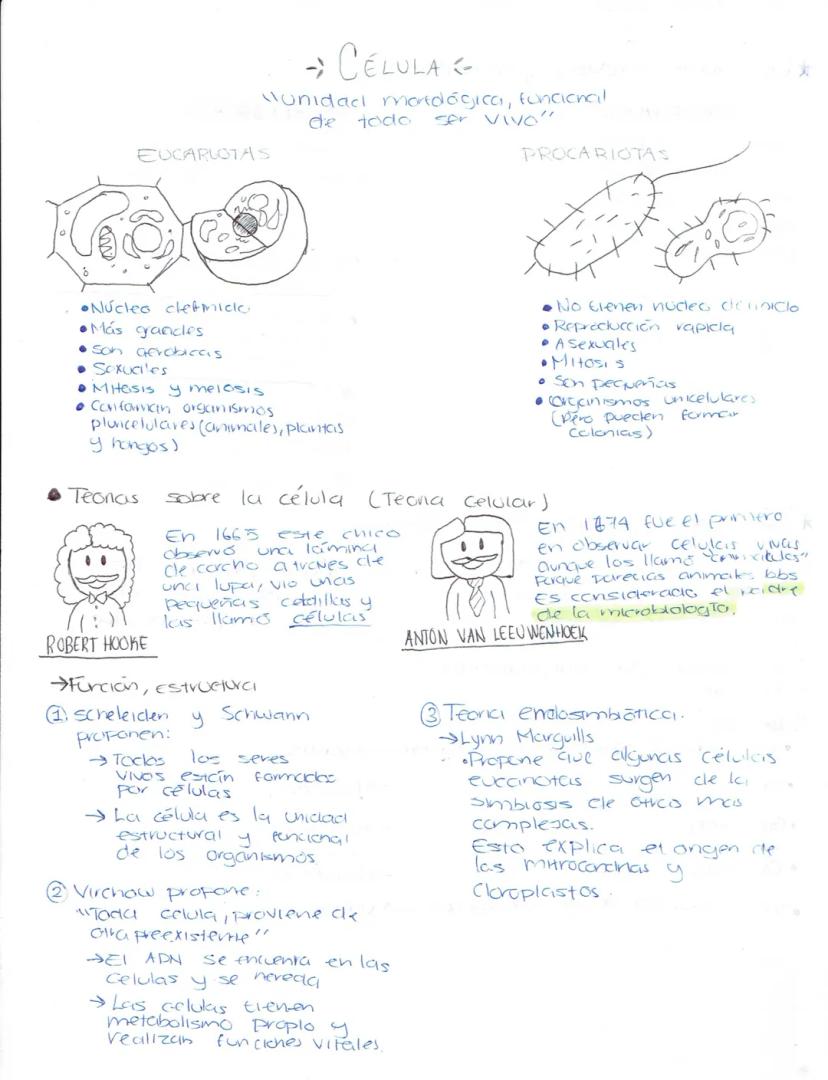 → CÉLULA ←
"Unidad morfológica, funcional
de todo ser vivo"
EUCARIOTAS
• Núcleo definido
• Más grandes
• Son aerobicas
• Sexuales
• Mitosis y meiosis
• Conforman organismos
pluricelulares (animales, plantas
y hongos)
PROCARIOTAS
• No tienen núcleo definido
• Reproducción rapida
• Asexuales
• Mitosis
• Son pequeñas
• Organismos unicelulares
(Pero pueden formar
colonias)
• Teorias sobre la célula (Teoria celular)
En 1665 este chico
observó una lámina
de corcho a traves de
una lupa, vio unas
pequeñas celdillas y
las llamó células
ROBERT HOOKE
En 1674 fue el primero
en observar celulas vivas
aunque los llamó
Porque parecias animales
Es considerado el padre
de la microbiología.
ANTON VAN LEEUWENHOEK
→ Función, estructura
① Scheleiden y Schwann
proponen:
→ Todos los seres
vivos están formados
por células
→ La célula es la unidad
estructural y funcional
de los organismos
② Virchow propone:
"Toda celula, proviene de
otra preexistente"
→ El ADN se encuentra en las
celulas y se hereda
→ Las celulas tienen
metabolismo propio y
realizan funciones vitales.
③ Teoria endosimbiótica.
→ Lynn Margulls
• Propone que algunas células
eucariotas surgen de la
simbiosis de otras mas
complejas.
Esto explica el origen de
las mitrocondrias y
Cloroplastos.